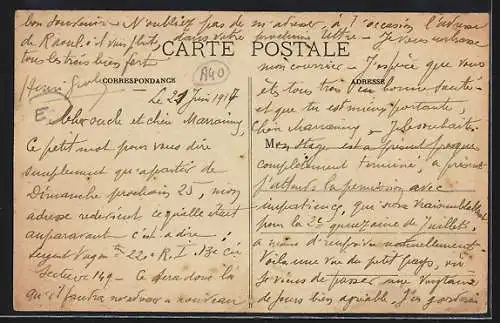 bon souvenir - N'oubliez pas de m'adresser, à l'occasion l'adresse
de Raoul s'il vous plaît dans votre prochaine lettre - Je vous embrasse
tous les trois bien fort
CARTE POSTALE
CORRESPONDANCE
ADRESSE
A40
E
Le 21 Juin 1917
et chère Marraine,
Ce petit mot pour vous dire
simplement qu'à partir de
Dimanche prochain 25, mon
adresse redevient ce qu'elle était
auparavant c'est-à-dire :
Sergent 22e R.I 13e Cie
Secteur 149 - Ce sera donc là
qu'il faudra m'adresser à nouveau
mon courrier - J'espère que vous
êtes tous trois en bonne santé -
et que tu es mieux portante,
chère Marraine, - Je le souhaite -
Mon stage est à présent presque
complètement terminé, à présent
j'attends la permission avec
impatience, qui sera vraisemblablement
pour la 2e quinzaine de Juillet,
à moins d'imprévu naturellement.
Voilà une vie du petit pays, où
je viens de passer une vingtaine
de jours bien agréable. J'en garderai